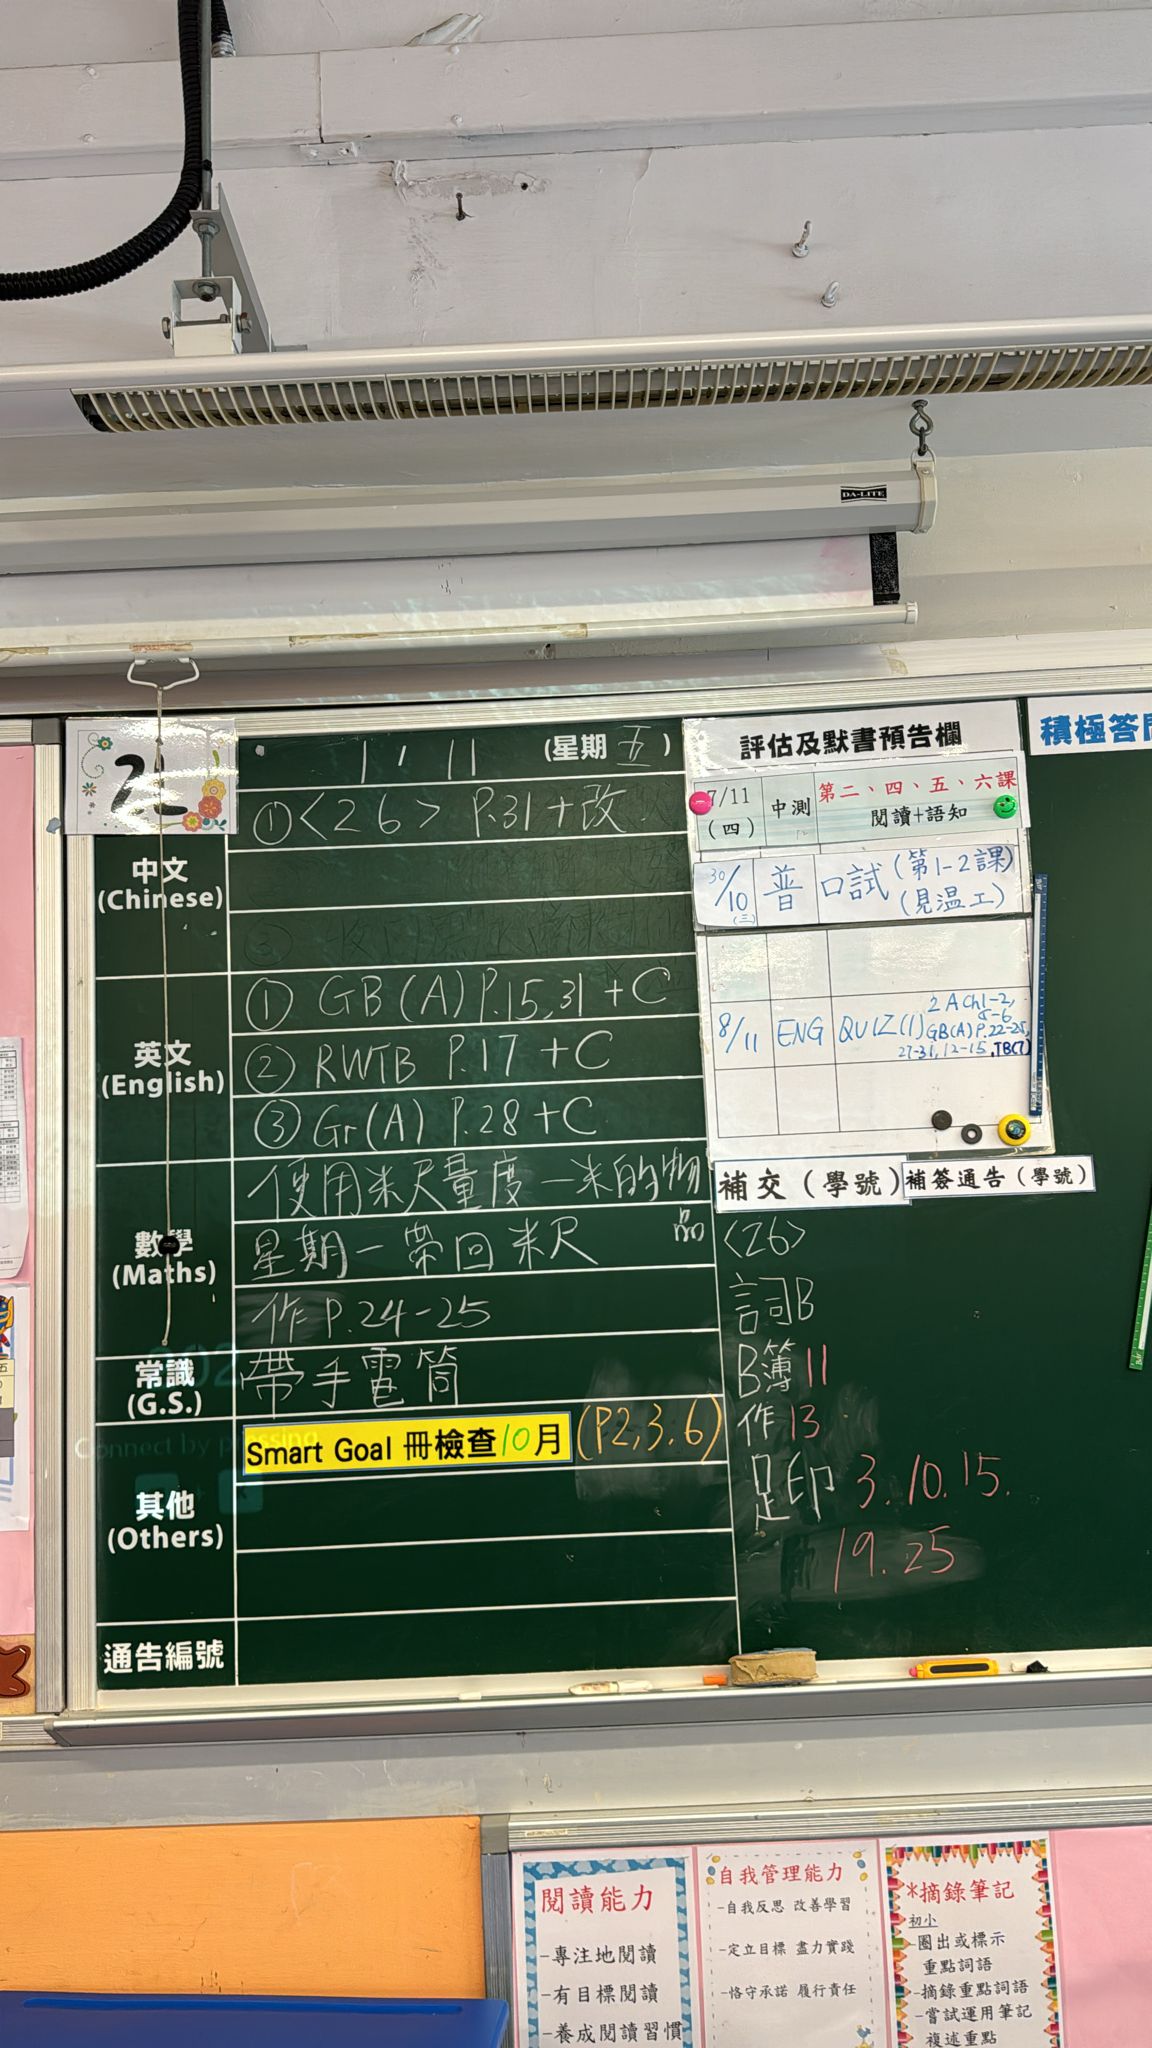 DA-LITE
2L
1/11 (星期五)
中文
(Chinese)
①<26> P.31+改
英文
(English)
① GB(A) P.15,31 +C
② RWTB P.17 +C
③ Gr(A) P.28+C
數學
(Maths)
使用米尺量度一米的物品
星期一帶回米尺
作 P.24-25
常識
(G.S.)
帶手電筒
Smart Goal 冊檢查10月 (P2,3.6)
其他
(Others)
通告編號
評估及默書預告欄
7/11
(四)
中測
第二、四、五、六課
閱讀+語知
30/10
(三)
普
口試(第1-2課)
(見溫工)
8/11
ENG
QUIZ(1)
2A Ch1-2,
5-6
GB(A) P.22-25,
27-31,12-15,TB(7)
補交(學號)
補簽通告(學號)
<26>
詞B
B簿 11
作 13
足印 3.10.15.
19.25
積極答問
閱讀能力
-專注地閱讀
-有目標閱讀
-養成閱讀習慣
自我管理能力
-自我反思 改善學習
-定立目標 盡力實踐
-恪守承諾 履行責任
*摘錄筆記
初小
-圈出或標示
重點詞語
-摘錄重點詞語
-嘗試運用筆記
複述重點